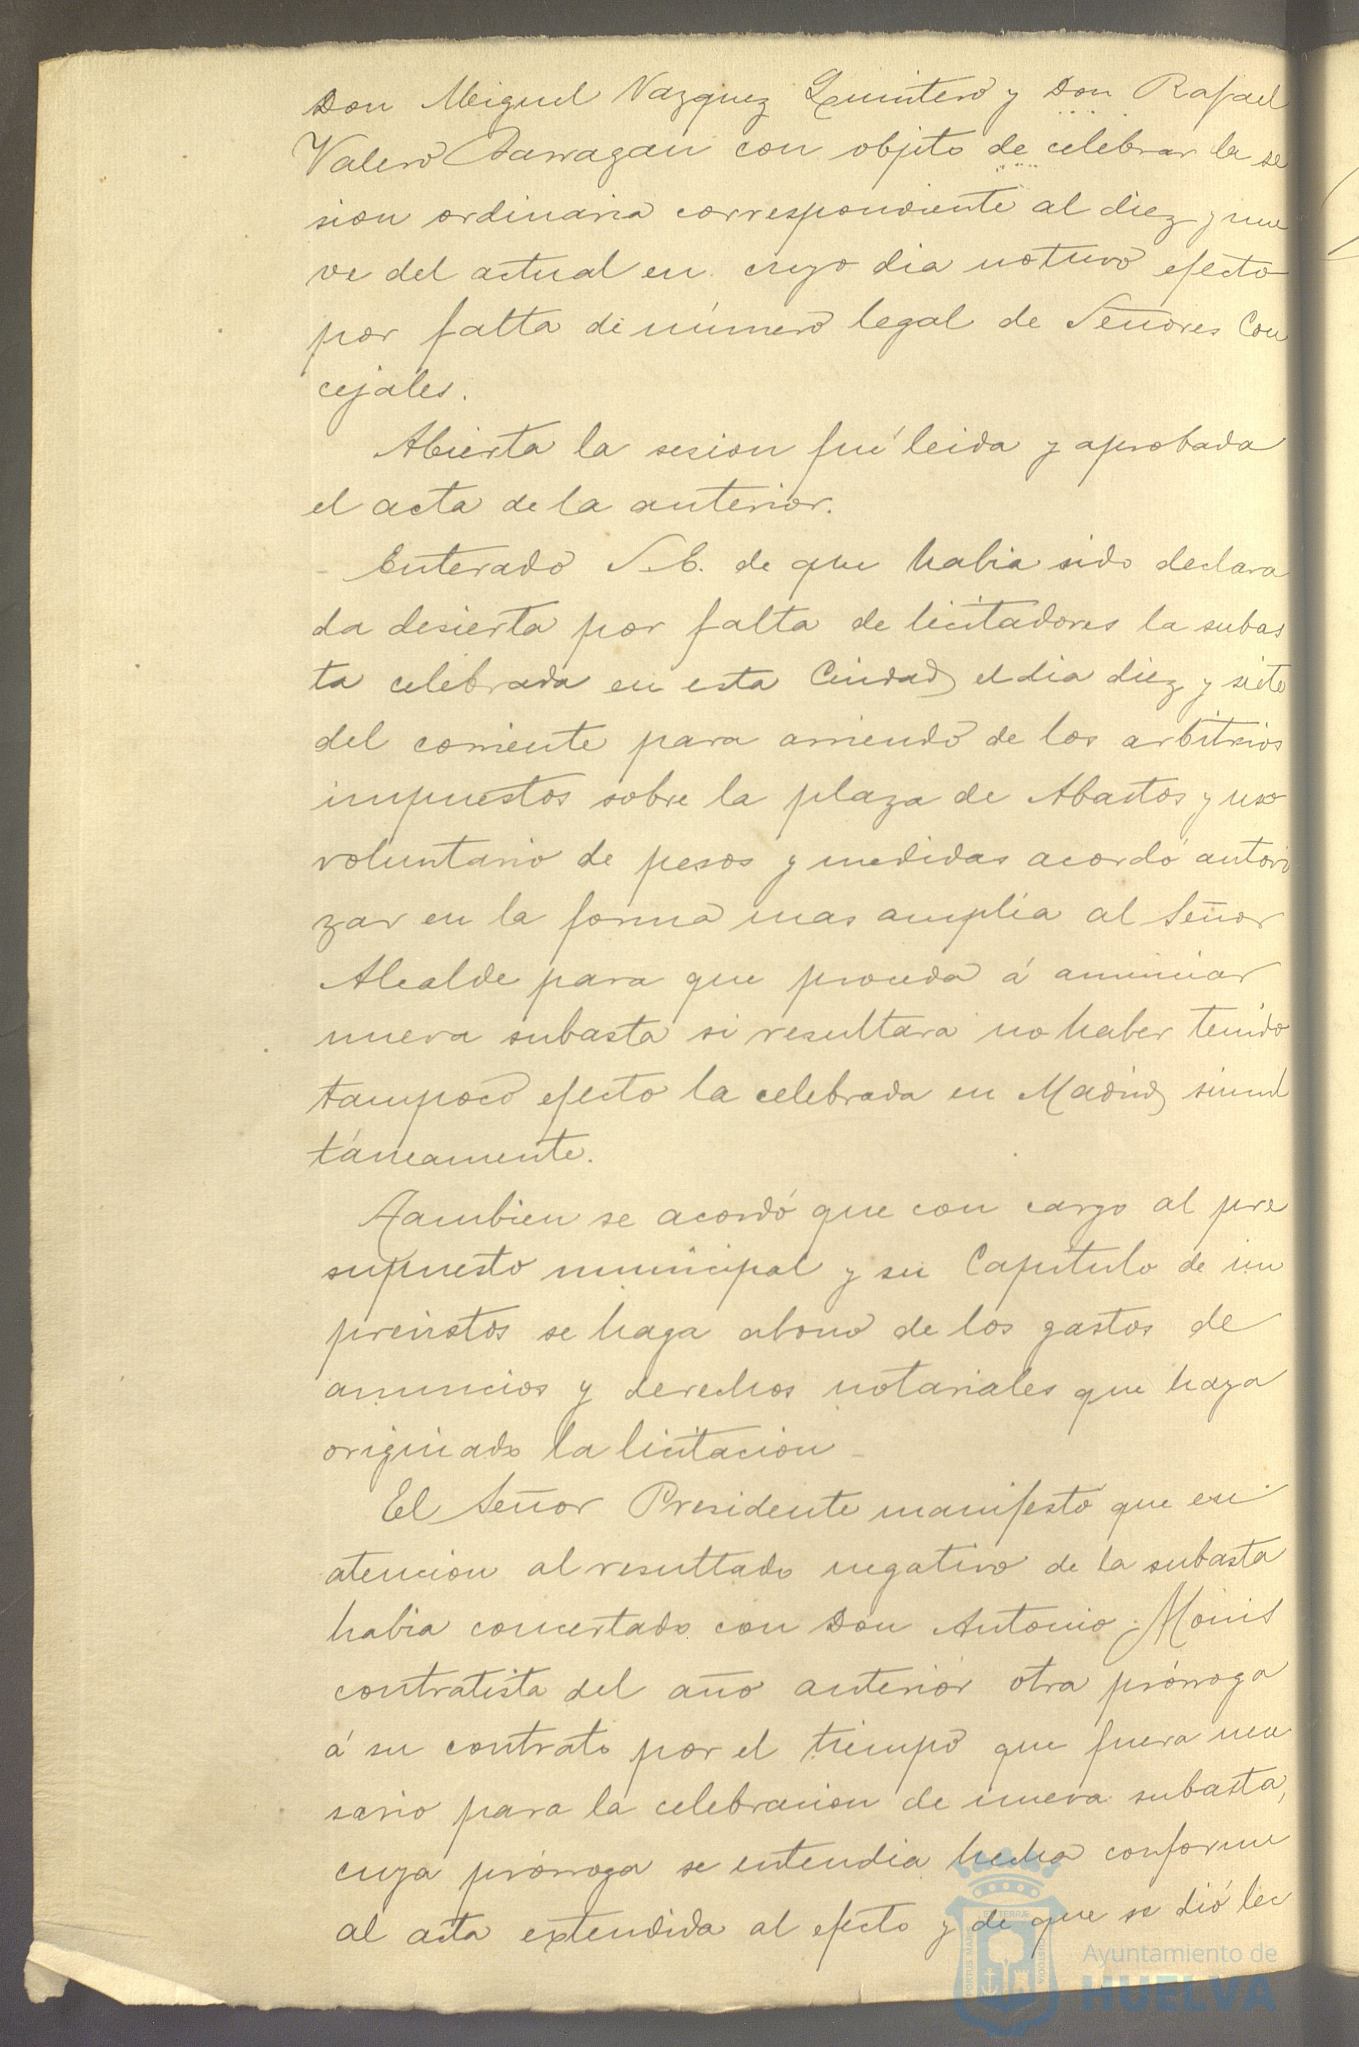 Don Miguel Vazquez Quintero y Don Rafael
Valero Tarragan con objeto de celebrar la se
sion ordinaria correspondiente al diez y nue
ve del actual en cuyo dia no tuvo efecto
por falta de número legal de Señores Con
cejales.
Abierta la sesion fué leida y aprobada
el acta de la anterior.
Enterado S.E. de que habia sido declara
da desierta por falta de licitadores la subas
ta celebrada en esta Ciudad el dia diez y siete
del corriente para arriendo de los arbitrios
impuestos sobre la plaza de Abastos y uso
voluntario de pesos y medidas acordó autori
zar en la forma mas amplia al Señor
Alcalde para que proceda á anunciar
nueva subasta si resultara no haber tenido
tampoco efecto la celebrada en Madrid simul
táneamente.
Tambien se acordó que con cargo al pre
supuesto municipal y su Capitulo de im
previstos se haga abono de los gastos de
anuncios y derechos notariales que haya
originado la licitacion
El Señor Presidente manifestó que en
atencion al resultado negativo de la subasta
habia concertado con Don Antonio Monis
contratista del año anterior otra prórroga
á su contrato por el tiempo que fuera nece
sario para la celebracion de nueva subasta,
cuya prórroga se entendia hecha conforme
al acta extendida al efecto y de que se dió lec
Ayuntamiento de
HUELVA